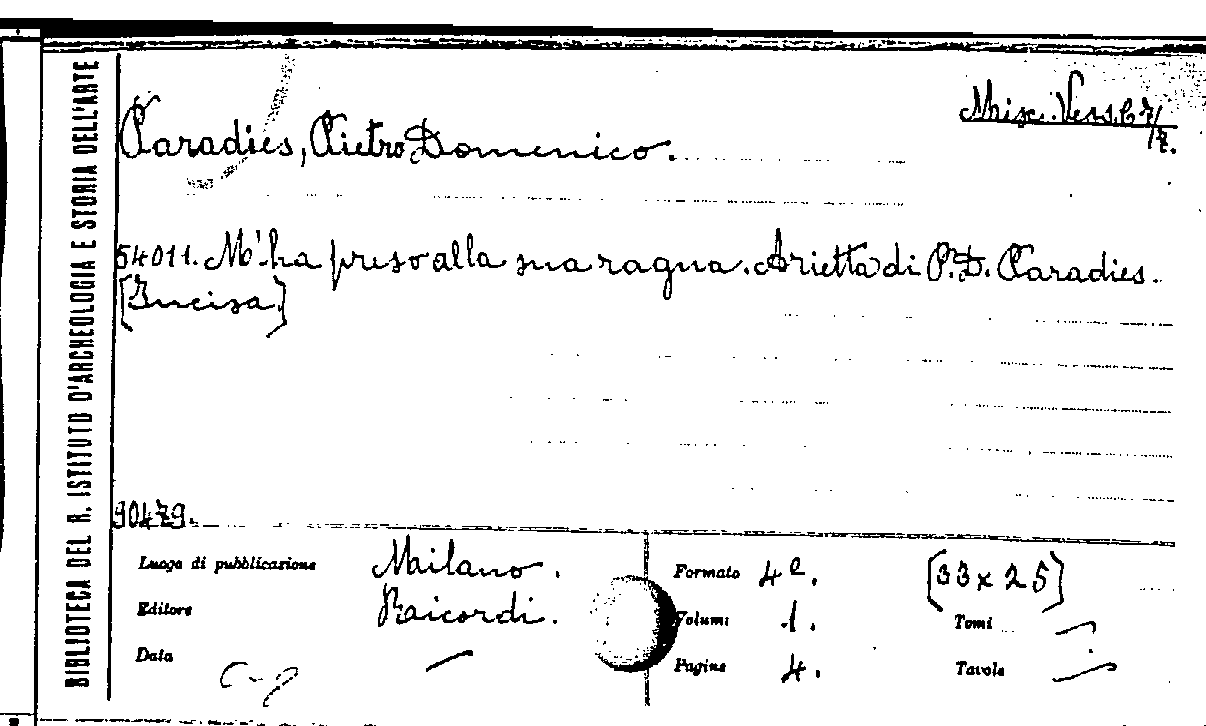 BIBLIOTECA DEL R. ISTITUTO D'ARCHEOLOGIA E STORIA DELL'ARTE
Misc. Vess. 67/7.
Paradies, Pietro Domenico.
54011. M'ha preso alla sua ragna. Arietta di P. D. Paradies.
[Incisa.]
90479.
Luogo di pubblicazione Milano.
Editore Ricordi.
Data —
Formato 4º. [33 x 25]
Volumi 1. Tomi —
Pagine 4. Tavole —